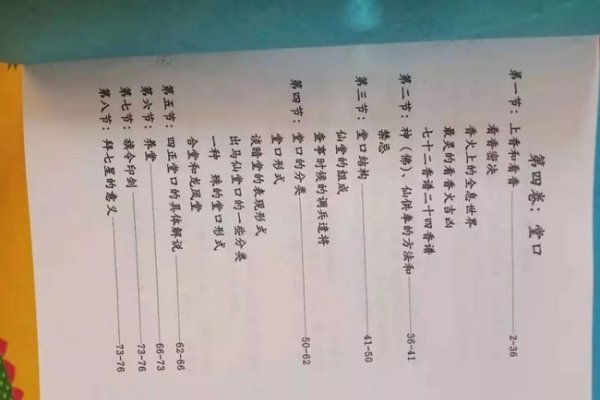 第四卷：堂口
第一节：上香和看香————2-36
看香密决
香火上的全息世界
最灵的看香火吉凶
七十二香谱二十四香谱
第二节：神（佛）、仙供奉的方法和
禁忌————36-41
第三节：堂口结构————41-50
仙堂的组成
查事时候的调兵遣将
第四节：堂口的分类————50-62
堂口形式
谈暗堂的表现形式
出马仙堂口的一些分类
一种 殊的堂口形式
合堂和龙凤堂
第五节：四正堂口的具体解说————62-66
第六节：养堂————66-73
第七节：旗令印剑————73-76
第八节：拜七星的意义————73-76